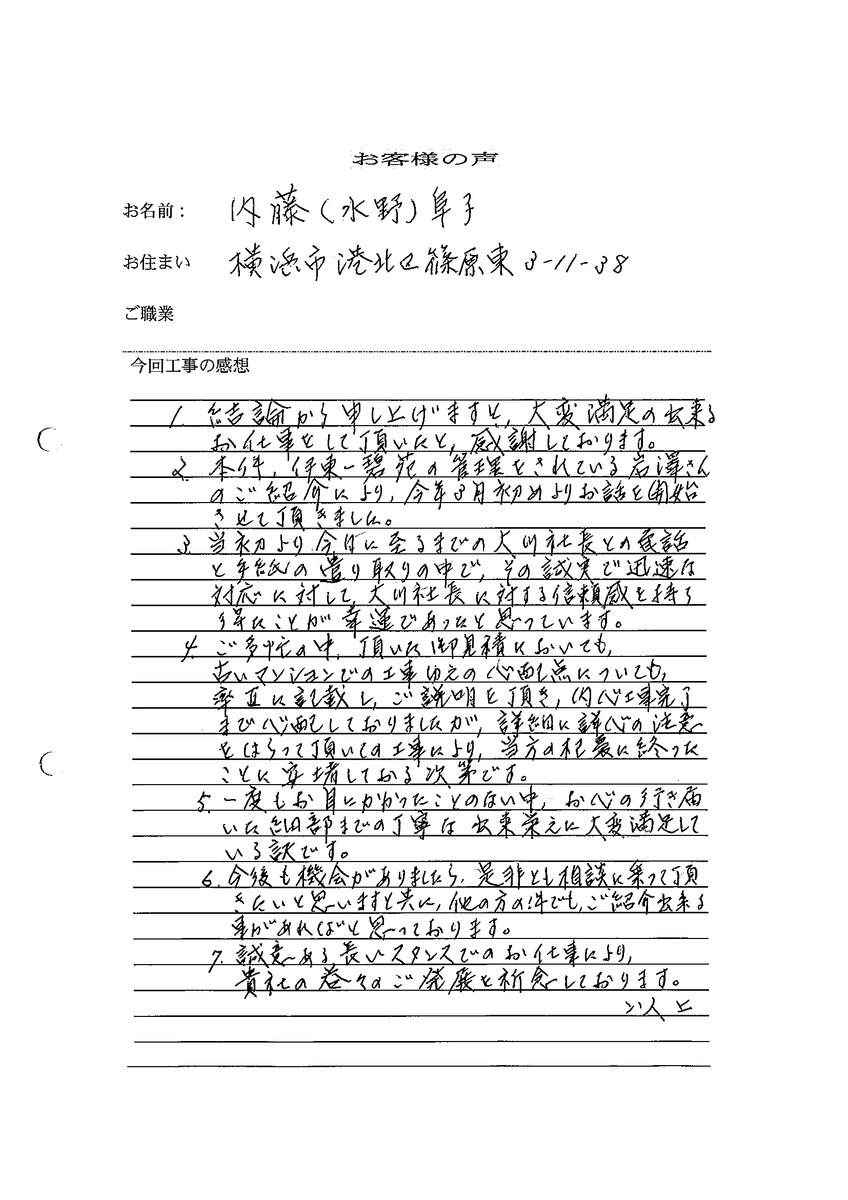 お客様の声
お名前： 内藤(水野)阜子
お住まい 横浜市港北区篠原東3-11-38
ご職業
今回工事の感想
1. 結論から申し上げますと、大変満足の出来る
お仕事をして頂いたと、感謝しております。
2. 本件、伊東一碧苑の管理をされている岩澤さん
のご紹介により、今年3月初めよりお話を開始
させて頂きました。
3. 当初より今日に至るまでの大川社長との電話
と手紙の遣り取りの中で、その誠実で迅速な
対応に対して、大川社長に対する信頼感を持ち
得たことが幸運であったと思っています。
4. ご多忙の中、頂いた御見積においても、
古いマンションでの工事ゆえの心配点についても、
率直に記載し、ご説明を頂き、内心工事完了
まで心配しておりましたが、詳細に誠心の注意
をはらって頂いての工事により、当方の杞憂に終った
ことに安堵しておる次第です。
5. 一度もお目にかかったことのない中、お心の行き届
いた細部までの丁寧な出来栄えに大変満足して
いる訳です。
6. 今後も機会がありましたら、是非とも相談に乗って頂
きたいと思いますと共に、他の方の件でも、ご紹介出来る
事があればと思っております。
7. 誠意ある長いスタンスでのお仕事により、
貴社の益々のご発展を祈念しております。
以上